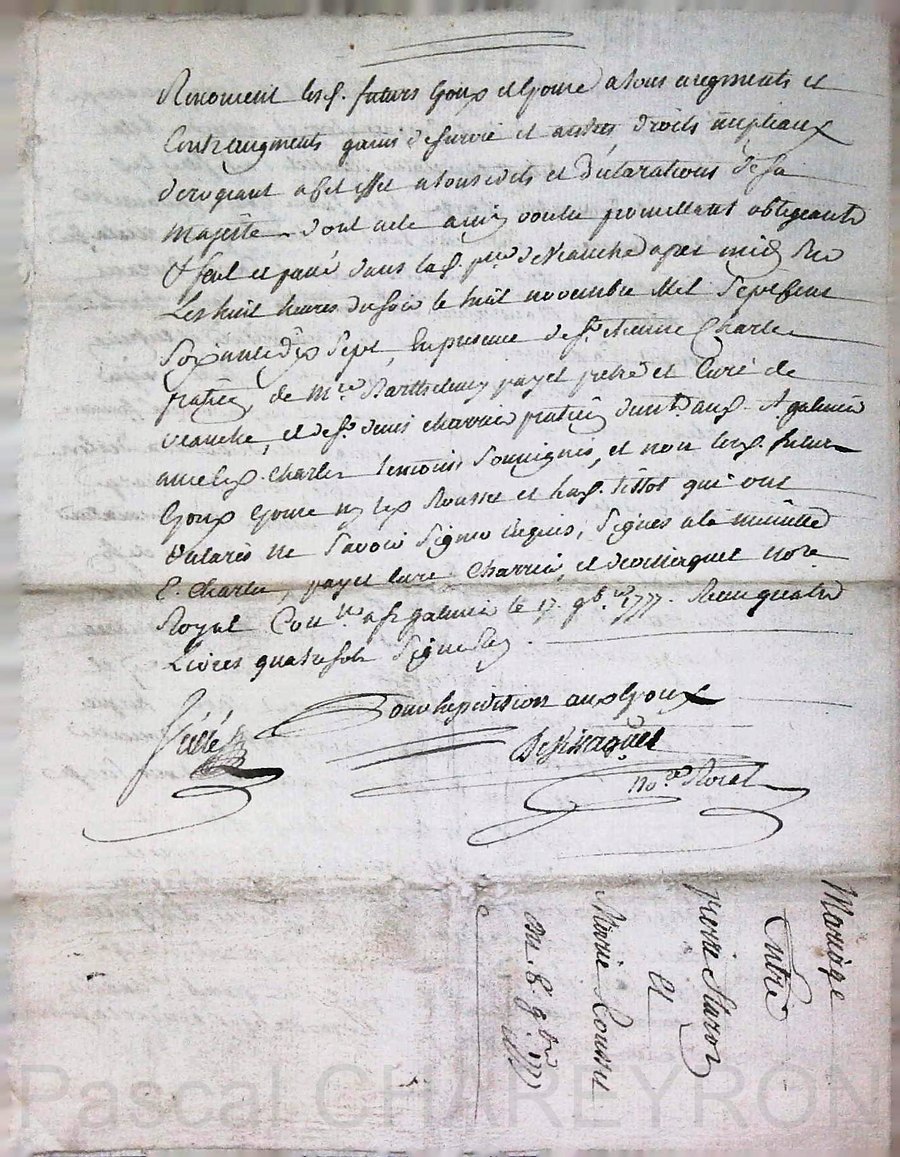 Renoncent lesd. futurs Epoux et Epouse a tous augments et
Contraugments gains de survie et autres droits nuptiaux
derogeant a Cet effet a tous edits et déclarations de Sa
Majesté dont acte ainsi voulu promettant obligeant
fait et passé dans lad. de Veauche apres midi
Les huit heures du soir le huit novembre Mil Sept Cent
Soixante dix Sept, En presence de Sr. Etienne Charles
praticien, de Mre. Barthelemy payet pretre et Curé de
veauche, et de Sr. denis charrin praticien a galmier
avec led. Charles temoins Soussignés, et non lesd. futurs
Epoux Epouse ny les Rousset et lad. tissot qui ont
declarés ne Savoir Signer Enquis, Signés a la minutte
E. Charles, payet Curé Charrin, et notre
Royal Con a St galmier le 17. 9b.re 1777. Reçu quatre
Livres quatre sols Signé
Pour Expedition aux Epoux
Scellé
No.re Royal
Mariage
Entre
et
Marie Rousset
du 8. 9bre 1777
Pascal CHAREYRON